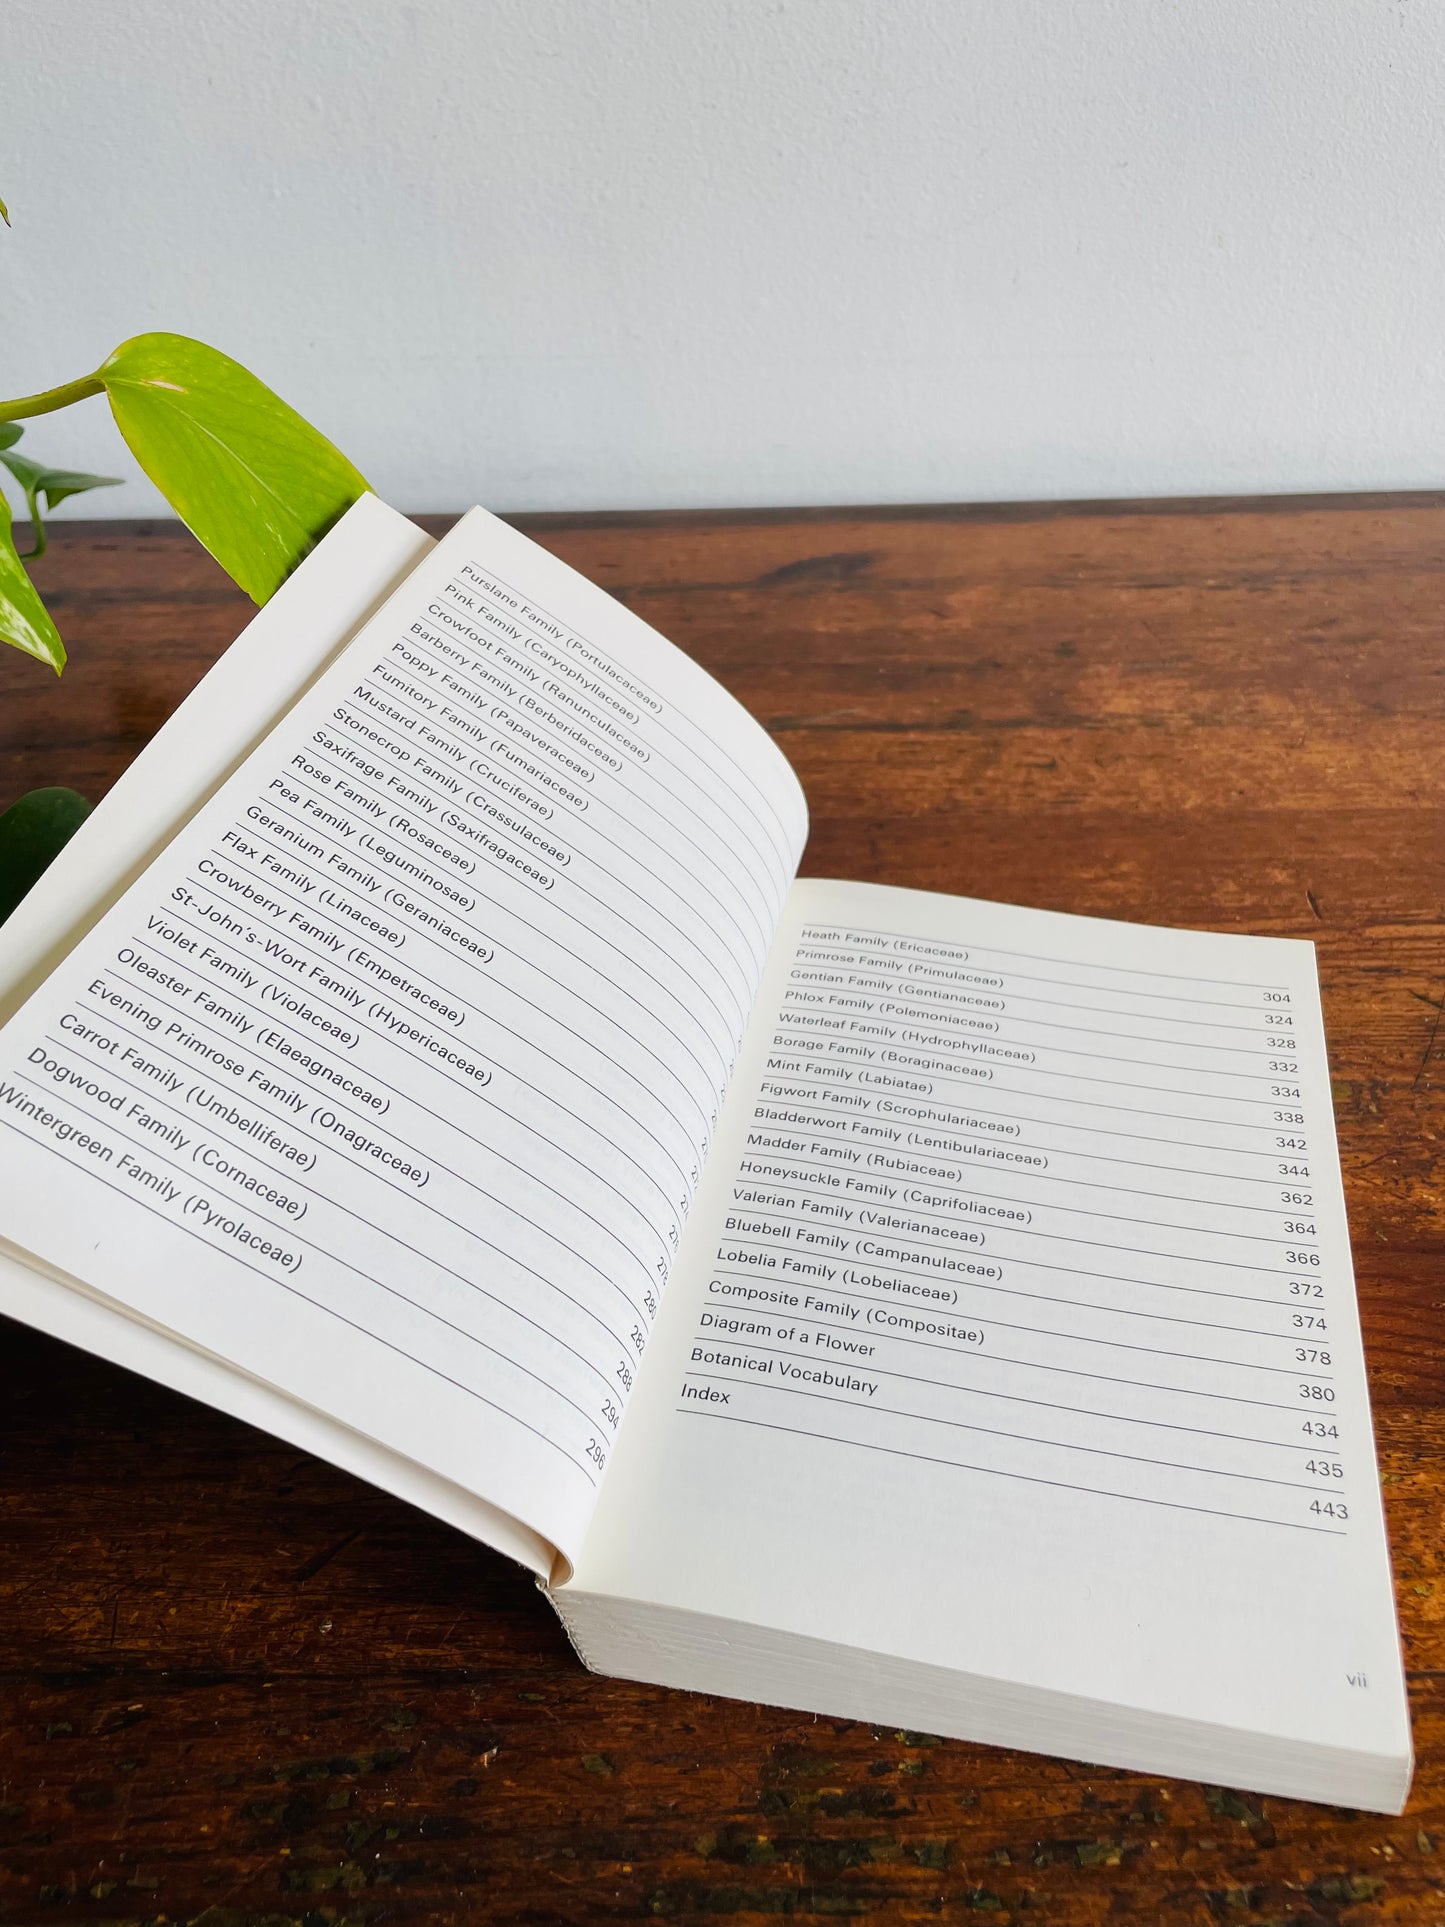 Purslane Family (Portulacaceae)
Pink Family (Caryophyllaceae)
Crowfoot Family (Ranunculaceae)
Barberry Family (Berberidaceae)
Poppy Family (Papaveraceae)
Fumitory Family (Fumariaceae)
Mustard Family (Cruciferae)
Stonecrop Family (Crassulaceae)
Saxifrage Family (Saxifragaceae)
Rose Family (Rosaceae)
Pea Family (Leguminosae)
Geranium Family (Geraniaceae)
Flax Family (Linaceae)
Crowberry Family (Empetraceae)
St-John's-Wort Family (Hypericaceae)
Violet Family (Violaceae) 278
Oleaster Family (Elaeagnaceae) 280
Evening Primrose Family (Onagraceae) 282
Carrot Family (Umbelliferae) 288
Dogwood Family (Cornaceae) 294
Wintergreen Family (Pyrolaceae) 296
Heath Family (Ericaceae) 304
Primrose Family (Primulaceae) 324
Gentian Family (Gentianaceae) 328
Phlox Family (Polemoniaceae) 332
Waterleaf Family (Hydrophyllaceae) 334
Borage Family (Boraginaceae) 338
Mint Family (Labiatae) 342
Figwort Family (Scrophulariaceae) 344
Bladderwort Family (Lentibulariaceae) 362
Madder Family (Rubiaceae) 364
Honeysuckle Family (Caprifoliaceae) 366
Valerian Family (Valerianaceae) 372
Bluebell Family (Campanulaceae) 374
Lobelia Family (Lobeliaceae) 378
Composite Family (Compositae) 380
Diagram of a Flower 434
Botanical Vocabulary 435
Index 443
vii